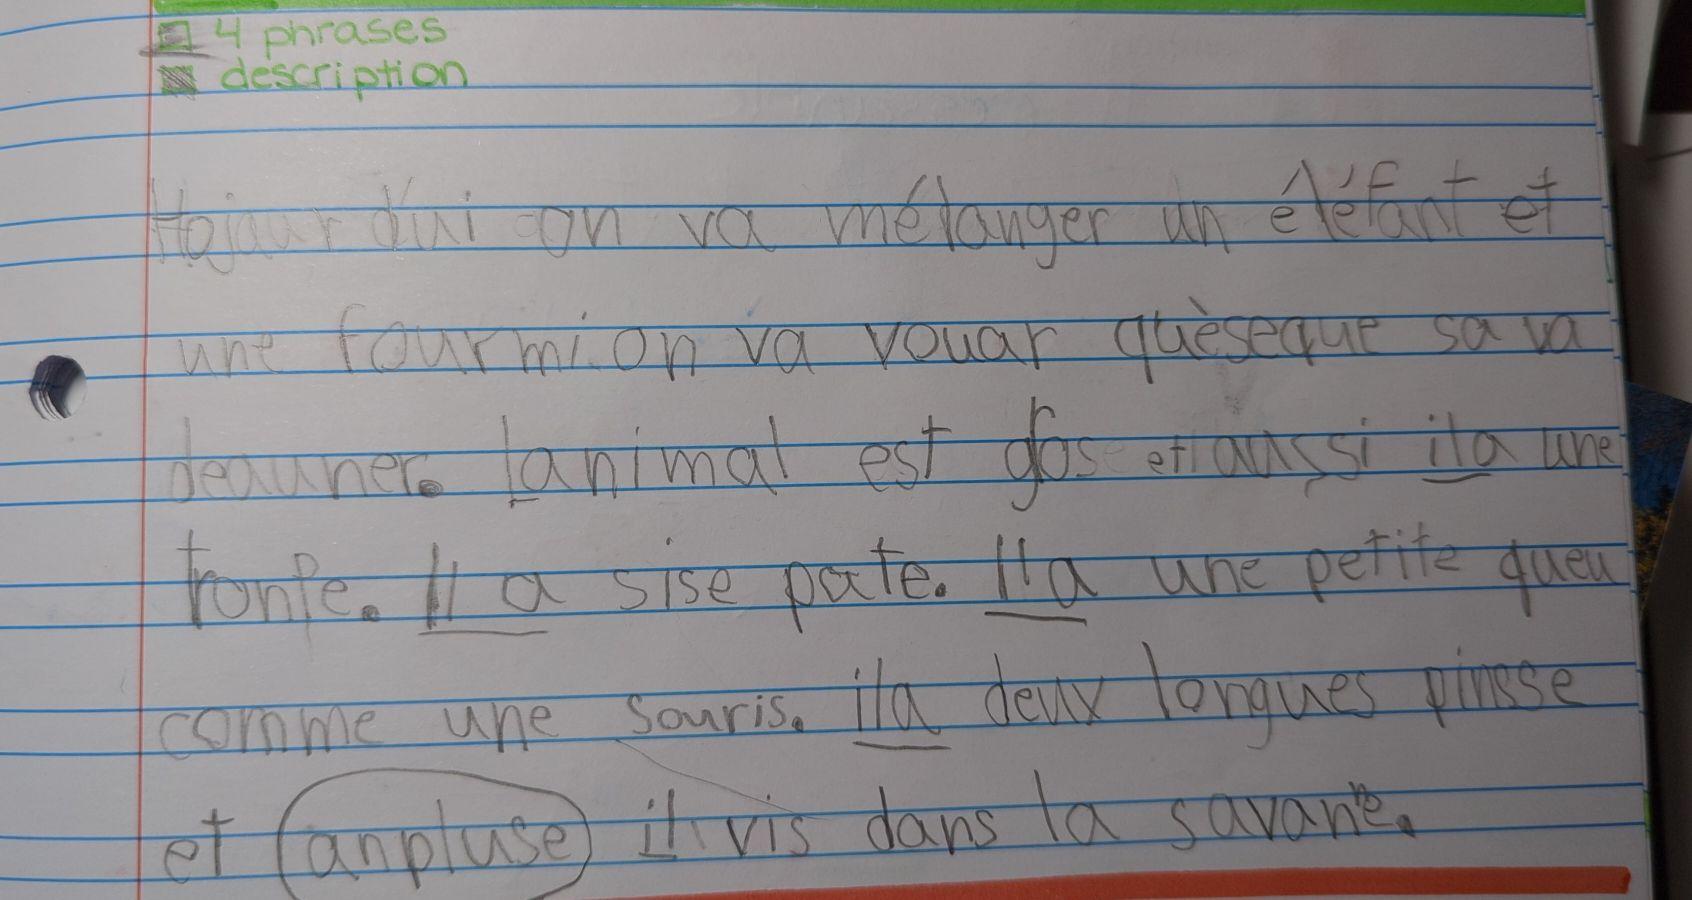 4 phrases
description
Hojourdui on va mélanger un éléfant et
une fourmi. on va vouar quèseque sa va
deauner. lanimal est gros et aussi ila une
tronpe. Il a sise pate. Il a une petite queu
comme une souris. ila deux longues pinsse
et anpluse il vis dans la savane.